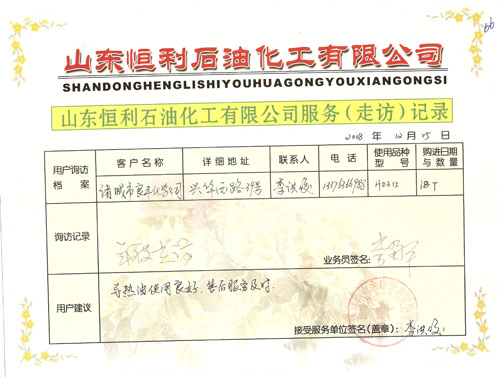 山东恒利石油化工有限公司
SHANDONGHENGLISHIYOUHUAGONGYOUXIANGONGSI
山东恒利石油化工有限公司服务(走访)记录
年 12 月 25 日
用户询访档案
客户名称 详细地址 联系人 电话 使用品种型号 购进日期与数量
诸城市良丰化学公司 兴华西路39号 李洪俊 18T
询访记录
业务员签名:
用户建议
导热油使用良好,售后服务及时.
接受服务单位签名(盖章): 李洪俊